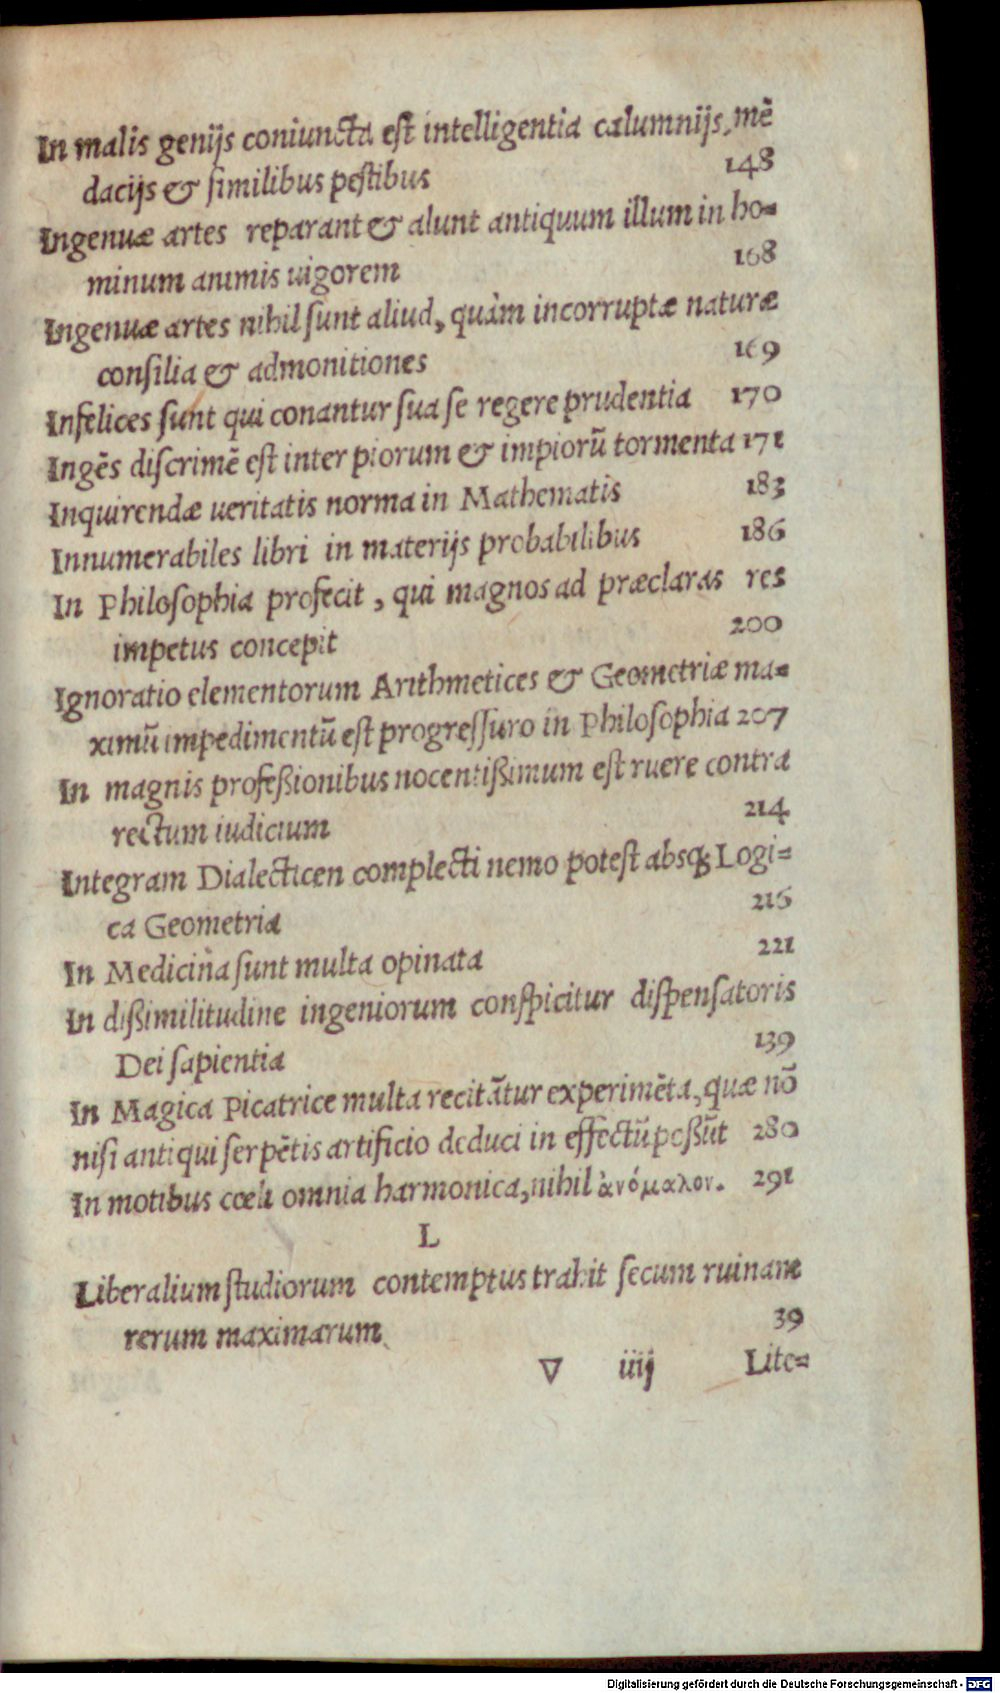 In malis genijs coniuncta est intelligentia calumnijs, mē
dacijs & similibus pestibus 148
Ingenuæ artes reparant & alunt antiquum illum in ho=
minum animis uigorem 168
Ingenuæ artes nihil sunt aliud, quàm incorruptæ naturæ
consilia & admonitiones 169
Infelices sunt qui conantur sua se regere prudentia 170
Ingēs discrimē est inter piorum & impiorū tormenta 171
Inquirendæ ueritatis norma in Mathematis 183
Innumerabiles libri in materijs probabilibus 186
In Philosophia profecit, qui magnos ad præclaras res
impetus concepit 200
Ignoratio elementorum Arithmetices & Geometriæ ma=
ximū impedimentū est progressuro in Philosophia 207
In magnis profeßionibus nocentißimum est ruere contra
rectum iudicium 214
Integram Dialecticen complecti nemo potest absq; Logi=
ca Geometria 216
In Medicina sunt multa opinata 221
In dißimilitudine ingeniorum conspicitur dispensatoris
Dei sapientia 139
In Magica Picatrice multa recitātur experimēta, quæ nō
nisi antiqui serpētis artificio deduci in effectū poßūt 280
In motibus cœli omnia harmonica, nihil ἀνόμαλον. 291
L
Liberalium studiorum contemptus trahit secum ruinam
rerum maximarum 39
∇ iiij Lite=
Digitalisierung gefördert durch die Deutsche Forschungsgemeinschaft - DFG